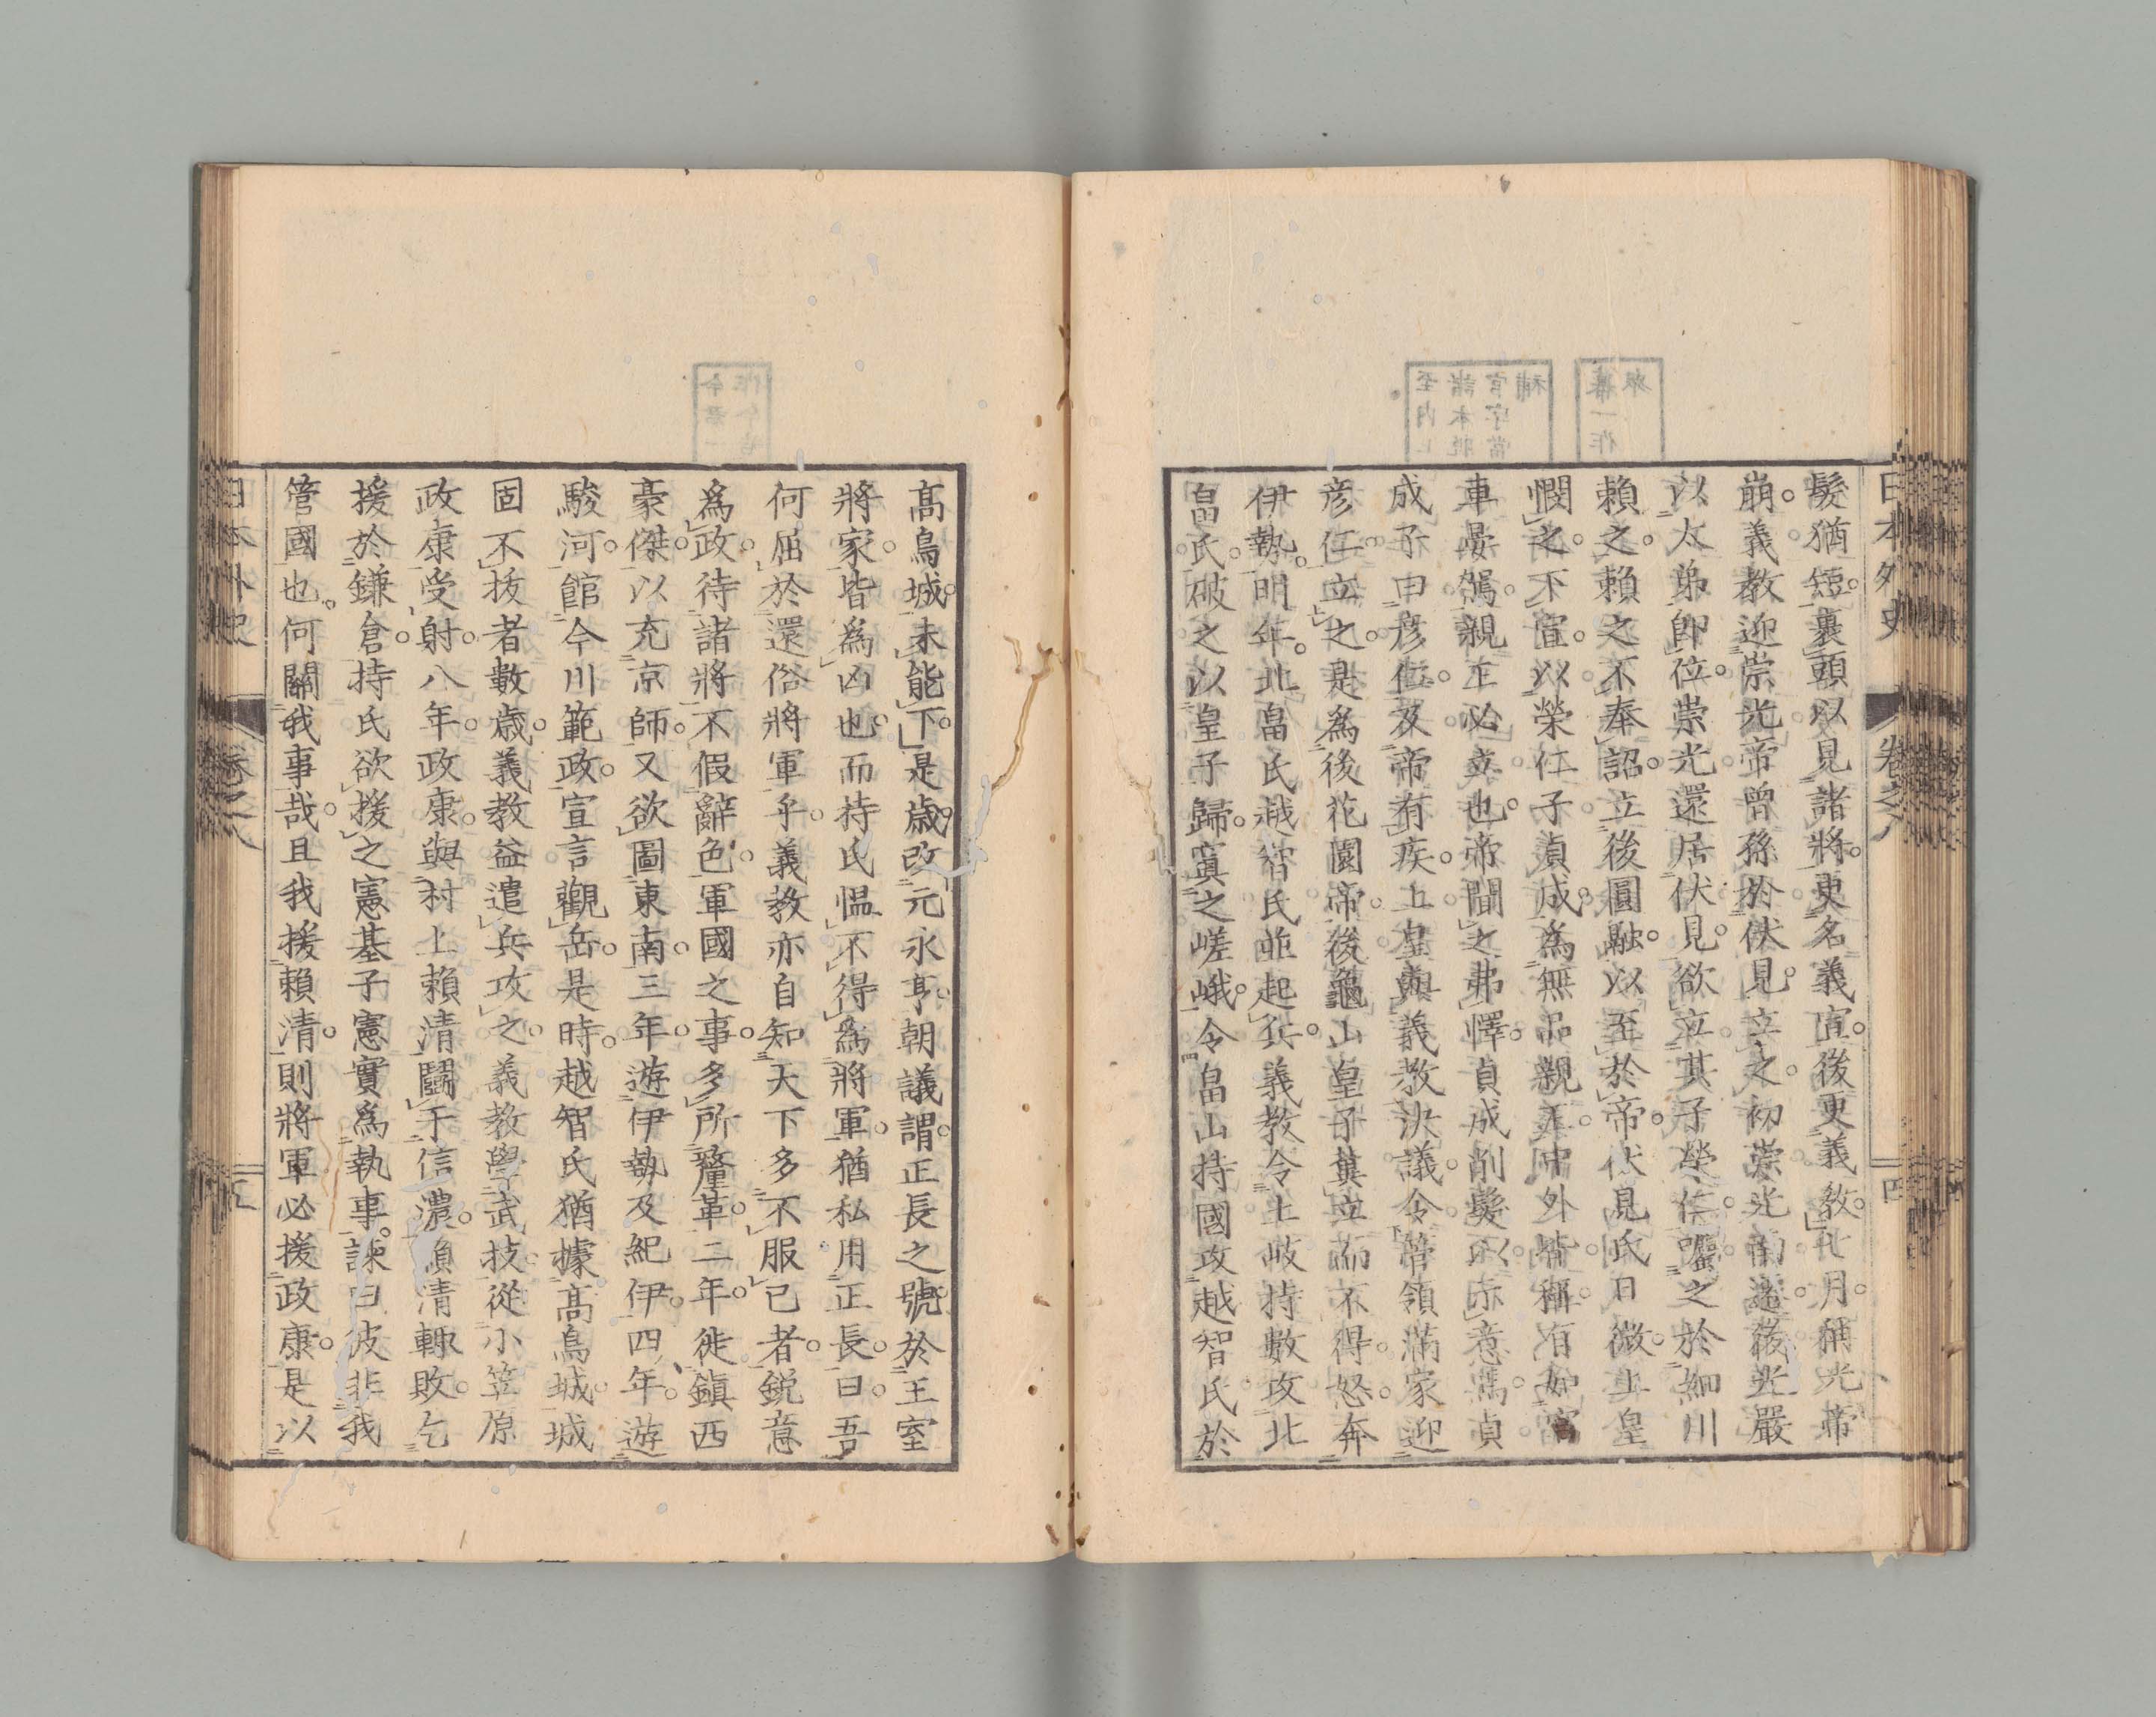 日本外史 卷之八 四
髮猶短。裹頭以見諸將。更名義宣。後更義教。七月。稱光帝
崩。義教迎崇光帝曾孫於伏見。立之。初崇光南遷。後光嚴
以太弟卽位。崇光還居伏見。欲立其子榮仁。囑之於細川
賴之。賴之不奉詔。立後圓融。以至於帝。伏見氏日微。上皇
憫之。不宣。以榮仁子貞成。爲無品親王。中外皆稱。有如宮
車晏駕。親王必立也。帝聞之弗懌。貞成削髮以示意焉。貞
成子曰彦仁。及帝有疾。上皇與義教決議。令管領滿家迎
彦仁立之。是爲後花園帝。後龜山皇子冀立而不得。怒。奔
伊勢。明年。北畠氏越智氏並起兵。義教令土岐持數攻北
畠氏。破之。以皇子歸。寘之嵯峨。令畠山持國攻越智氏於
高鳥城。未能下。是歲。改元永享。朝議謂。正長之號。於王室
將家。皆爲凶也。而持氏愠不得爲將軍。猶私用正長。曰。吾
何屈於還俗將軍乎。義教亦自知天下多不服己者。銳意
爲政。待諸將不假辭色。軍國之事。多所釐革。二年。徙鎭西
豪傑。以充京師。又欲圖東南。三年。遊伊勢及紀伊。四年。遊
駿河。館今川範政。宣言觀岳。是時。越智氏猶據高鳥城。城
固不拔者數歲。義教益遣兵攻之。義教學武技。從小笠原
政康受射。八年。政康與村上賴清鬪于信濃。賴清輙敗。乞
援於鎌倉。持氏欲援之。憲基子憲實爲執事。諫曰彼非我
管國也。何關我事哉。且我援賴清。則將軍必援政康。是以
日本外史 卷之八 五